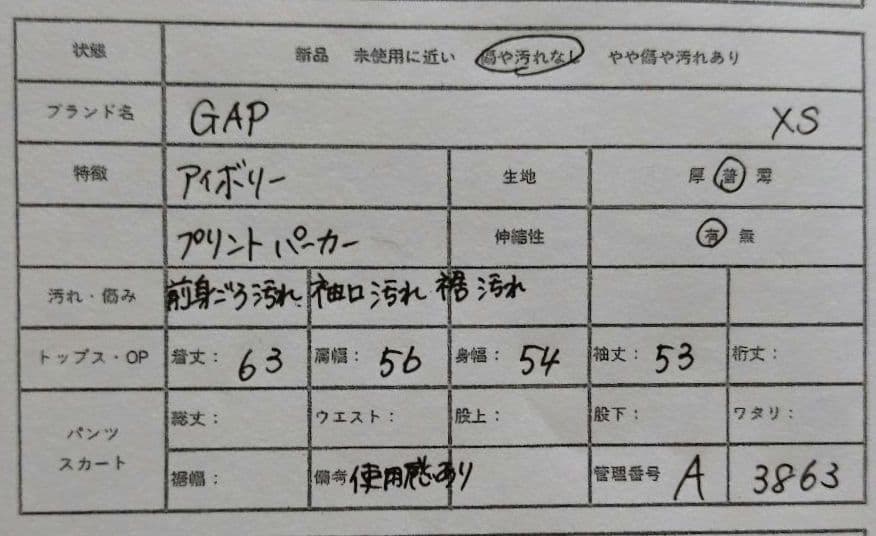 状態 新品 未使用に近い 傷や汚れなし やや傷や汚れあり
ブランド名 GAP XS
特徴 アイボリー 生地 厚 普 薄
プリントパーカー 伸縮性 有 無
汚れ・傷み 前身ごろ汚れ 袖口汚れ 裾汚れ
トップス・OP 着丈: 63 肩幅: 56 身幅: 54 袖丈: 53 裄丈:
パンツ スカート 総丈: ウエスト: 股上: 股下: ワタリ:
裾幅: 備考 使用感あり 管理番号 A 3863